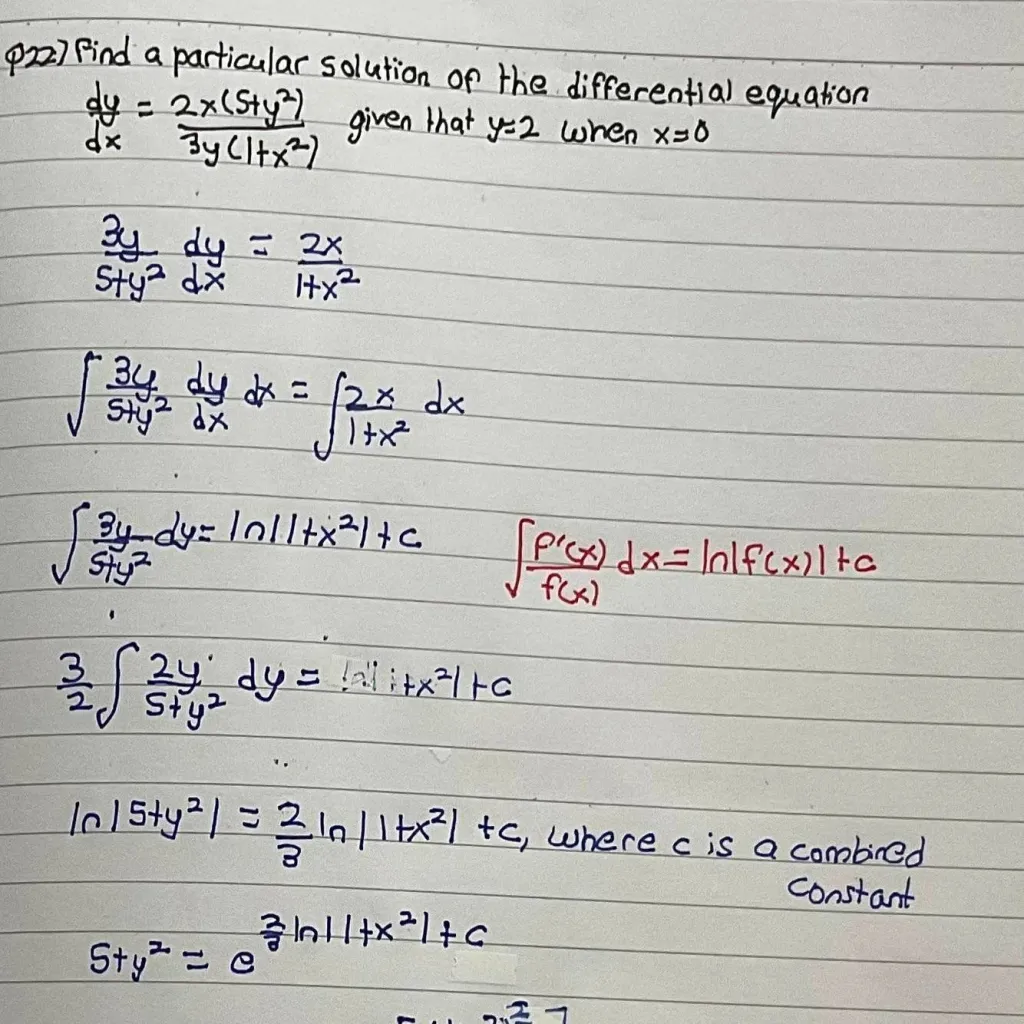 Q22) Find a particular solution of the differential equation
dy/dx = 2x(5+y²)/3y(1+x²) given that y=2 when x=0
3y/5+y² dy/dx = 2x/1+x²
∫ 3y/5+y² dy/dx dx = ∫ 2x/1+x² dx
∫ 3y/5+y² dy = ln|1+x²| + c ∫ f'(x)/f(x) dx = ln|f(x)| + c
3/2 ∫ 2y/5+y² dy = ln|1+x²| + c
ln|5+y²| = 2/3 ln|1+x²| + c, where c is a combined
constant
5+y² = e^(2/3 ln|1+x²| + c)